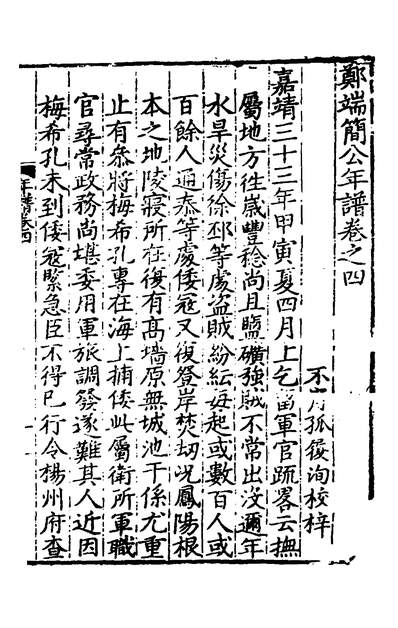 鄭端簡公年譜卷之四
不肖孤履洵校梓
嘉靖三十三年甲寅夏四月上乞留軍官疏畧云撫
屬地方徃歲豐稔尚且鹽礦強賊不常出没邇年
水旱災傷徐邳等處盗賊紛紜毎起或數百人或
百餘人通泰等處倭冦又復登岸焚刼况鳳陽根
本之地陵寢所在復有髙墻原無城池干係尤重
止有叅將梅希孔專在海上捕倭此屬衛所軍職
官尋常政務尚堪委用軍旅調發遂難其人近因
梅希孔未到倭冦緊急臣不得已行令楊州府查
年譜卷四